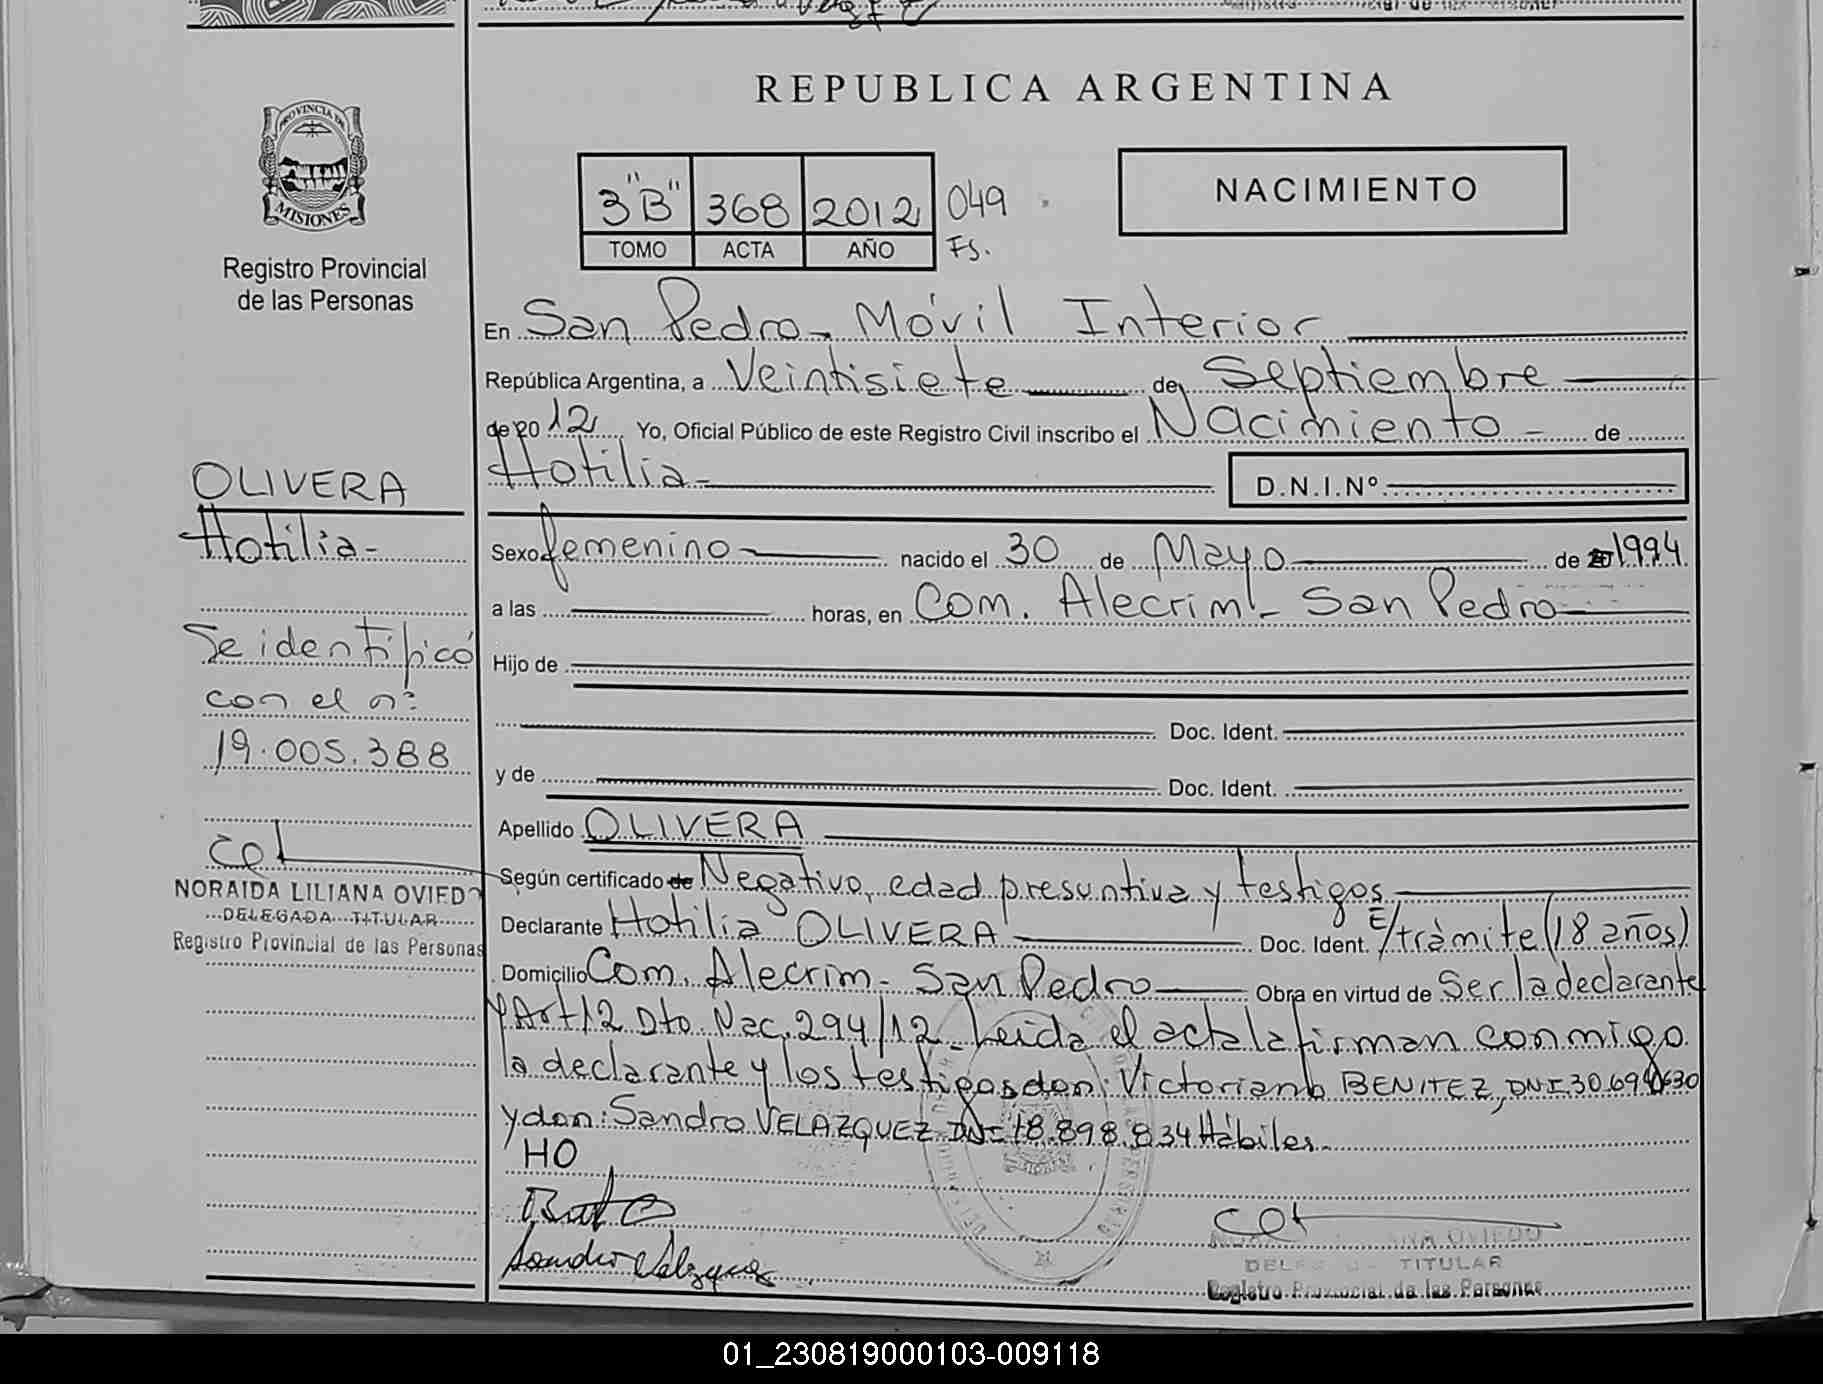 REPUBLICA ARGENTINA
PROVINCIA DE
MISIONES
Registro Provincial
de las Personas
3 "B" 368 2012 049
TOMO ACTA AÑO Fs.
NACIMIENTO
En San Pedro - Móvil Interior
República Argentina, a Veintisiete de Septiembre
de 20 12 Yo, Oficial Público de este Registro Civil inscribo el Nacimiento - de
Hotilia - D.N.I.Nº
OLIVERA
Hotilia -
Se identificó
con el nº:
19.005.388
NORAIDA LILIANA OVIEDO
DELEGADA TITULAR
Registro Provincial de las Personas
Sexo femenino nacido el 30 de Mayo de 1994
a las horas, en Com. Alecrim - San Pedro
Hijo de
Doc. Ident.
y de Doc. Ident.
Apellido OLIVERA
Según certificado de Negativo, edad presuntiva y testigos
Declarante Hotilia OLIVERA Doc. Ident. E/trámite (18 años)
Domicilio Com. Alecrim - San Pedro Obra en virtud de Ser la declarante
y Art 12 Dto Nac. 294/12 - Leida el acta la firman conmigo
la declarante y los testigos don: Victoriano BENITEZ, DNI
y don: Sandro VELAZQUEZ 18.898.834 Hábiles -
HO
Sandro Velazquez
OVIEDO
TITULAR
Registro Provincial de las Personas
01_230819000103-009118